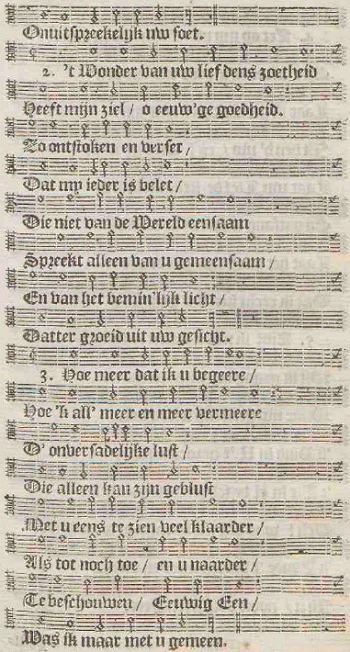 Onuitspreekelijk uw soet.
2. 't Wonder van uw liefdens zoetheid
Heeft mijn ziel / o eeuw'ge goedheid.
Zo ontstoken en verset /
Dat my ieder is belet /
Die niet van de Wereld eensaam
Spreekt alleen van u gemeensaam /
En van het bemin'lijk licht /
Datter groeid uit uw gesicht.
3. Hoe meer dat ik u begeere /
Hoe 'k all' meer en meer vermeere
D' onversadelijke lust /
Die alleen kan zijn geblust
Met u eens te zien veel klaarder /
Als tot noch toe / en u naarder /
Te beschouwen / Eeuwig Een /
Was ik maar met u gemeen.